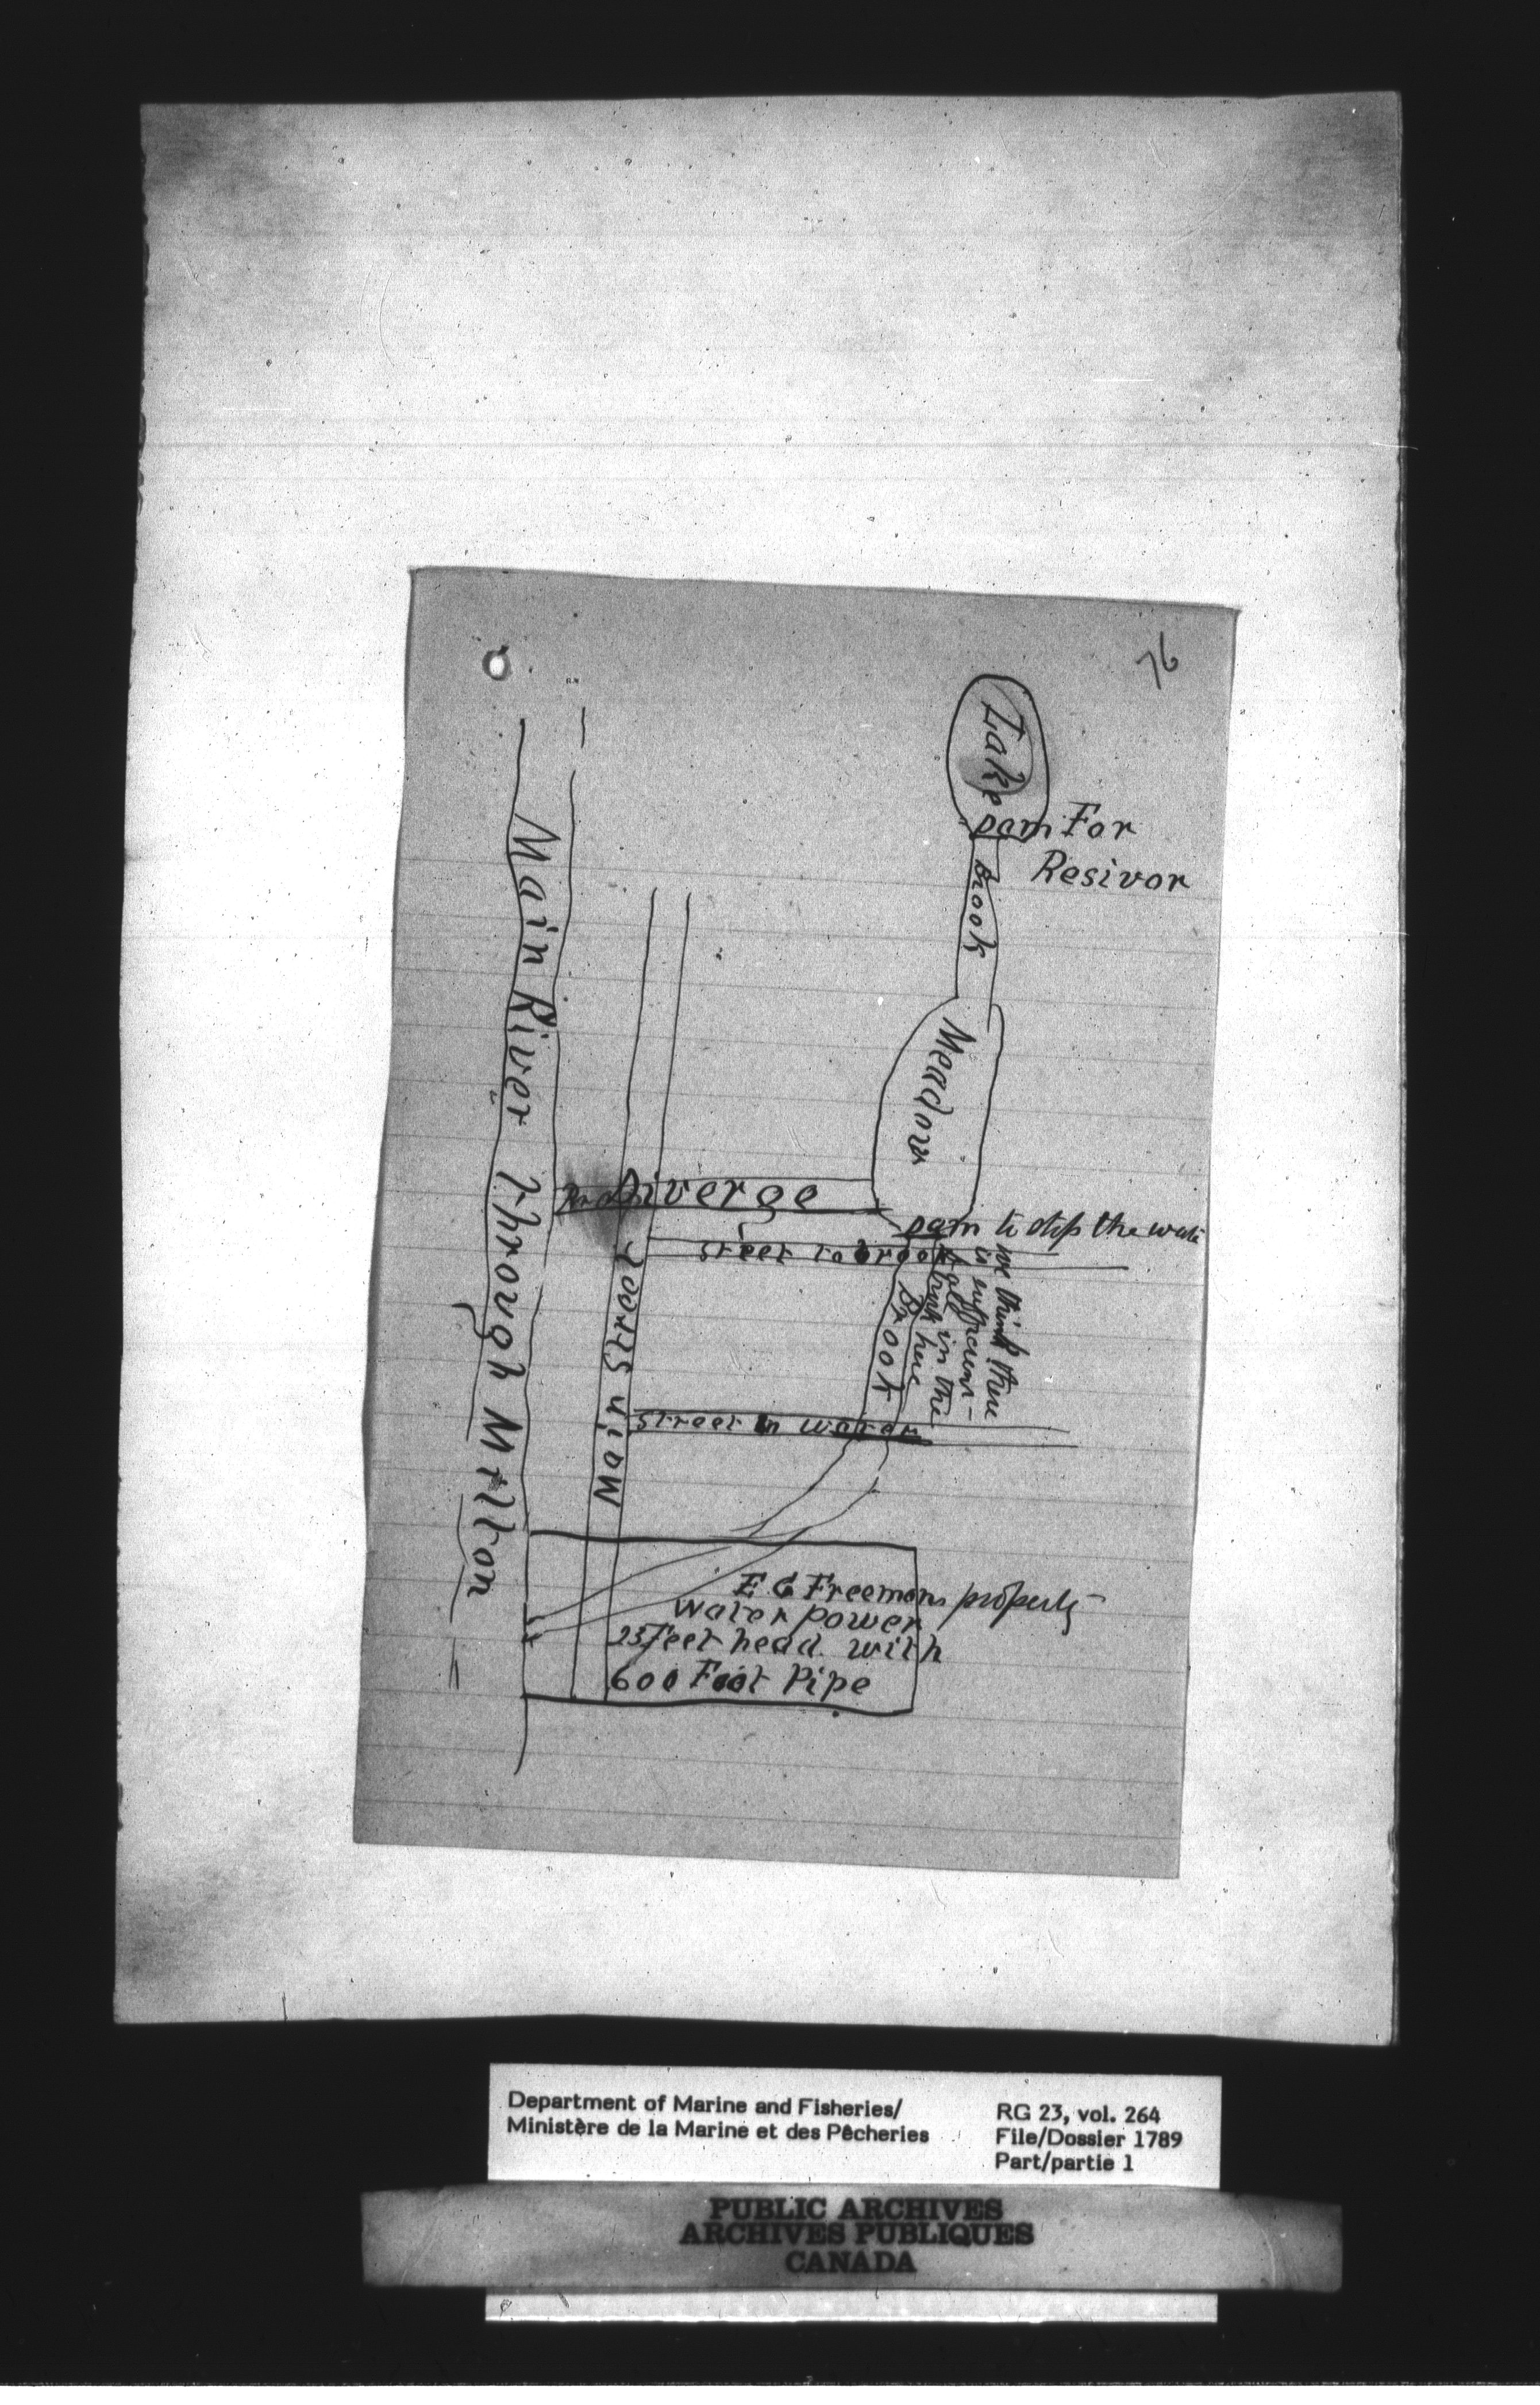 76
Lake
Dam For
Resivor
Brook
Meadow
Main River Through Milton
Diverge
Dam to stop the wate
Street to brook
we think there
is sufficient
fall in the
brook here
Brook
Main Street
Street in water
E G Freemans property
Water power
23 Feet head with
600 Foot Pipe
Department of Marine and Fisheries/
Ministère de la Marine et des Pêcheries
RG 23, vol. 264
File/Dossier 1789
Part/partie 1
PUBLIC ARCHIVES
ARCHIVES PUBLIQUES
CANADA